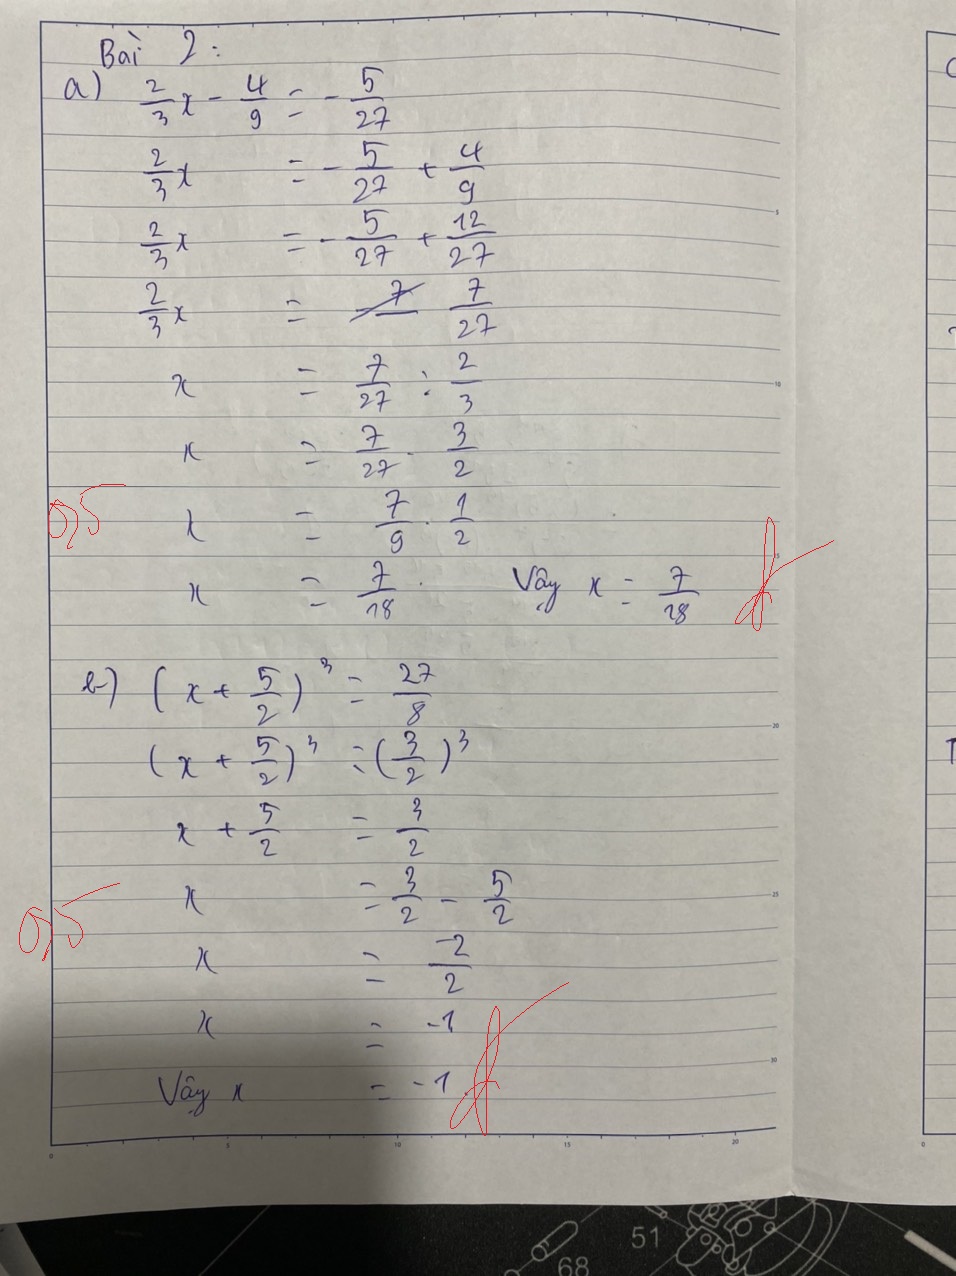 Bài 2:
a) 2/3 x - 4/9 = - 5/27
2/3 x = - 5/27 + 4/9
2/3 x = - 5/27 + 12/27
2/3 x = 7/27
x = 7/27 : 2/3
x = 7/27 . 3/2
0,5 x = 7/9 . 1/2
x = 7/18 . Vây x = 7/18 đ
b) (x + 5/2)³ = 27/8
(x + 5/2)³ = (3/2)³
x + 5/2 = 3/2
x = 3/2 - 5/2
0,5
x = -2/2
x = -1
Vây x = -1. đ
5
10
15
20
25
30
0 5 10 15 20
0
51
68